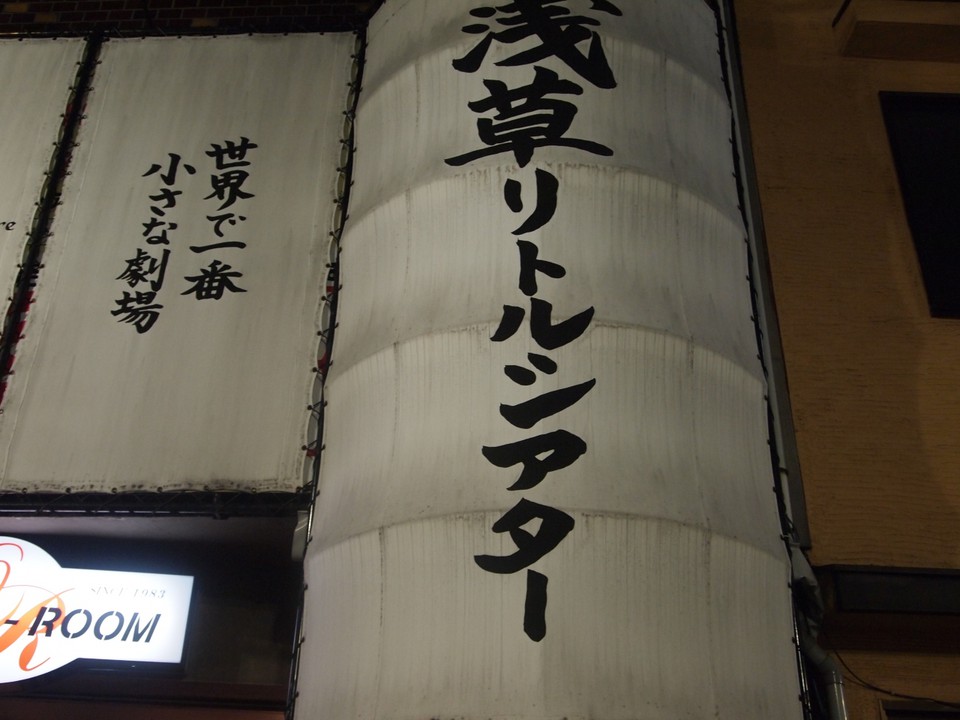 浅草リトルシアター
世界で一番
小さな劇場
re
SINCE 1983
R-ROOM